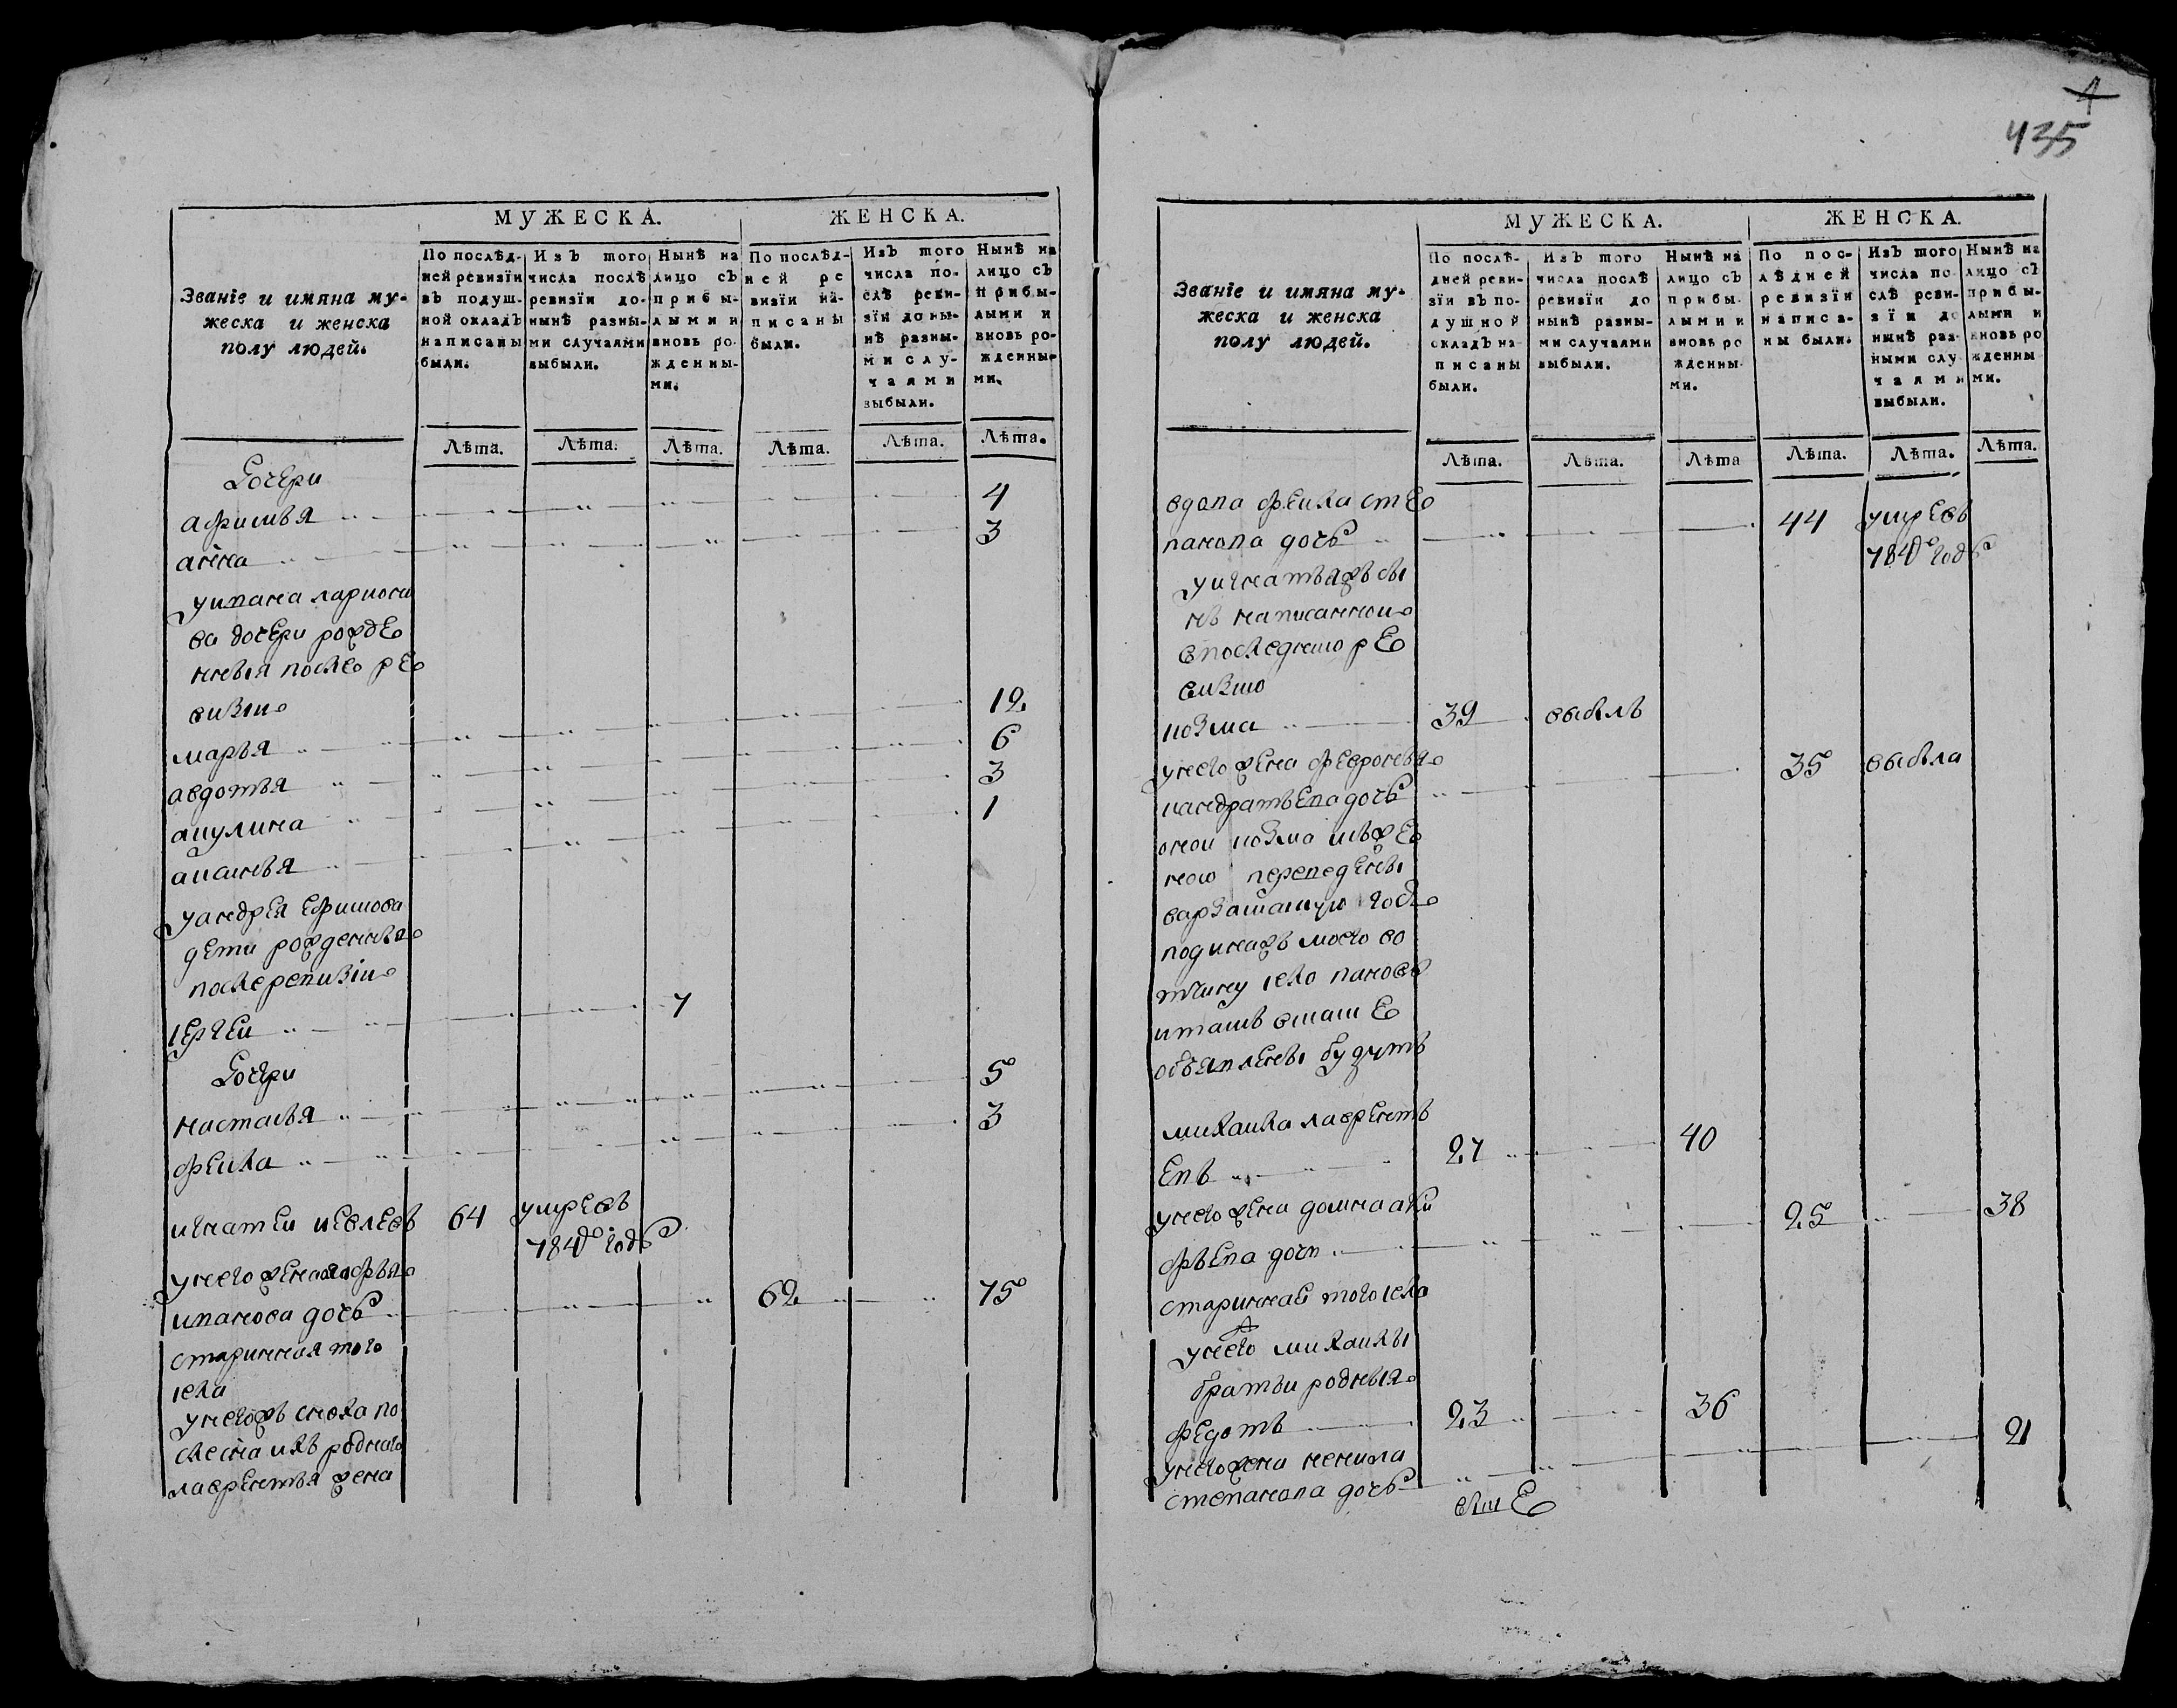 4
435
МУЖЕСКА. ЖЕНСКА.
Званіе и имяна му-
жеска и женска
полу людей.
По послѣд-
ней ревизіи
въ подуш-
ной окладъ
написаны
были.
Изъ того
числа послѣ
ревизіи до-
нынѣ разны-
ми случаями
выбыли.
Нынѣ на
лицо съ
прибы-
лыми и
вновь ро-
жденны-
ми.
По послѣд-
ней ре
визіи на-
писаны
были.
Изъ того
числа по-
слѣ реви-
зіи до ны-
нѣ разны-
ми слу-
чаями
выбыли.
Нынѣ на
лицо съ
прибы-
лыми и
вновь ро-
жденны-
ми.
Лѣта. Лѣта. Лѣта. Лѣта. Лѣта. Лѣта.
Дочери
афимья 4
анна 3
уивана лариона
ва дочери рожде
нныя после ре
визіи
марья 12
авдотья 6
акулина 3
аксинья 1
уандрея ефимова
дети рожденныя
послеревизіи
сергей 7
Дочери
настасья 5
фекла 3
игнатей иевлевъ 64 умревъ
784го году
унего жена агафья
иванова дочь 62 75
старинная того
села
унегожъ сноха по
сына ихъ роднаго
лаврентья жена
МУЖЕСКА. ЖЕНСКА.
Званіе и имяна му-
жеска и женска
полу людей.
По послѣ-
дней реви-
зіи въ по-
душной
окладъ на-
писаны
были.
Изъ того
числа послѣ
ревизіи до
нынѣ разны-
ми случаями
выбыли.
Нынѣ на
лицо съ
прибы-
лыми и
вновь ро
жденны-
ми.
По пос-
лѣдней
ревизіи
написа-
ны были.
Изъ того
числа по
слѣ реви-
зіи до
нынѣ раз-
ными слу
чаями
выбыли.
Нынѣ на
лицо съ
прибы-
лыми и
вновь ро
жденны
ми.
Лѣта. Лѣта. Лѣта Лѣта. Лѣта. Лѣта.
вдова фекла сте
панова дочь 44 умревъ
784го году
уигнатьяжъ сы
нъ написанной
впоследнею ре
визию
козма 39 выбылъ
унего жена февронья
кандратьева дочь 35 выбыла
оной козма съже
ною переведены
варзамаскую
моего во
тчину село паново
итамъ
объявлены будутъ
михаила лаврентъ
евъ 27 40
унего жена домна
фьева дочь 25 38
стариннае того села
унего михаилы
братьи родныя
федотъ 23 36
унего жена ненила
степанова дочь 21